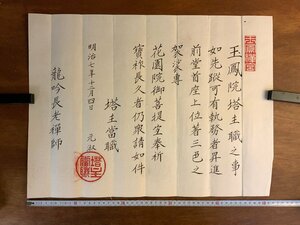 玉鳳院塔主職之事
如先蹤可有執務者昇進
前堂首座上位著三色之
袈裟專
花園院御菩提宜奉祈
寶祚長久者仍衆請如件
塔主當職
明治七年十二月四日
龍吟長老禪師